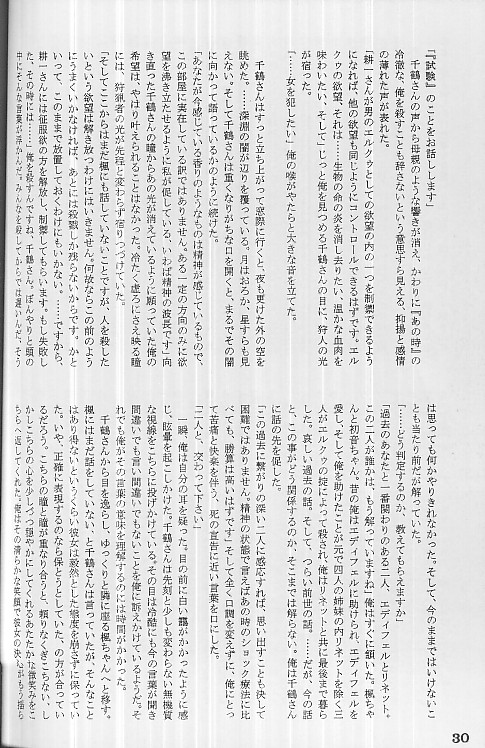 「『試験』のことをお話しします」
千鶴さんの声から母親のような響きが消え、かわりに『あの時』の
冷徹な、俺を殺すことも辞さないという意思すら見える、抑揚と感情
の薄れた声が表れた。
「耕一さんが男のエルクゥとしての欲望の内の一つを制禦できるよう
になれば、他の欲望も同じようにコントロールできるはずです。エル
クゥの欲望、それは……生物の命の炎を消し去りたい、温かな血肉を
味わいたい、そして」じっと俺を見つめる千鶴さんの目に、狩人の光
が宿った。
「……女を犯したい」俺の喉がやたらと大きな音を立てた。
千鶴さんはすっと立ち上がって窓際に行くと、夜も更けた外の空を
眺めた。……深淵の闇が辺りを覆っている。月はおろか、星すらも見
えない。そして千鶴さんは重くなりがちな口を開くと、まるでその闇
に向かって語っているかのように続けた。
「あなたが今感じている香りのようなものは精神が感じているもので、
この部屋に実在している訳ではありません。ある一定の方向のみに欲
望を沸き立たせるように私が促している、いわば精神の波長です」向
き直った千鶴さんの瞳からあの光が消えているように願っていた俺の
希望は、やはり叶えられることはなかった。冷たく虚ろにさえ映る瞳
には、狩猟者の光が先程と変わらず宿りつづけていた。
「そしてここからはまだ楓にも話していないことですが、人を殺した
いという欲望は解き放つわけにはいきません。何故ならこの前のよう
にうまくいかなければ、あとには殺戮しか残らないからです。かと
いって、このままで放置しておくわけにもいかない。……ですから、
耕一さんには征服欲の方を解放し、制禦してもらいます。もし失敗し
た、その時には……」俺を殺すんですね、千鶴さん。ぼんやりと頭の
中にそんな言葉が浮かんだ。みんなを殺してからでは遅いんだ、そう
は思っても何かやりきれなかった。そして、今のままではいけないこ
とも当たり前だが解っていた。
「……どう判定するのか、教えてもらえますか」
「過去のあなたと一番関わりのある二人、エディフェルとリネット。
この二人が誰かは、もう解っていますね」俺はすぐに頷いた。楓ちゃ
んと初音ちゃん。昔の俺はエディフェルに助けられ、エディフェルを
愛し、そして俺を助けたことが元で四人の姉妹の内リネットを除く三
人がエルクゥの掟によって殺され、俺はリネットと共に最後まで暮ら
した。哀しい過去の話。そして、つらい前世の話。……だが、今の話
と、この事がどう関係するのか、そこまでは解らない。俺は千鶴さん
に話の先を促した。
「この過去に繋がりの深い二人に感応すれば、思い出すことも決して
困難ではありません。精神の状態で言えばあの時のショック療法に比
べても、勝算は高いはずです」そして全く口調を変えずに、俺にとっ
て苦痛と快楽を伴う、死の宣告に近い言葉を口にした。
「二人と、交わって下さい」
一瞬、俺は自分の耳を疑った。目の前に白い靄がかかったように感
じ、眩暈を起こしかかった。千鶴さんは先刻と少しも変わらない無機質
な視線をこちらに投げかけている。その目は冷酷にも今の言葉が聞き
間違いでも言い間違いでもないことを俺に訴えかけているようだ。そ
れでも俺がその言葉の意味を理解するのには時間がかかった。
千鶴さんから目を逸らし、ゆっくりと隣に座る楓ちゃんへと移す。
楓にはまだ話をしていない、と千鶴さんは言っていたが、そんなこと
はあり得ないというくらい彼女は毅然とした態度を崩さずに保ってい
た。いや、正確に表現するのなら保とうとしていた、の方が合ってい
るだろう。こちらの瞳と瞳が重なり合うと、頼りなくぎこちない、し
かしこちらの心を少しづつ穏やかにしてくれるあたたかな微笑みをこ
ちらへ返してくれた。俺はその清らかな笑顔で、彼女の決心がもう揺ら
30